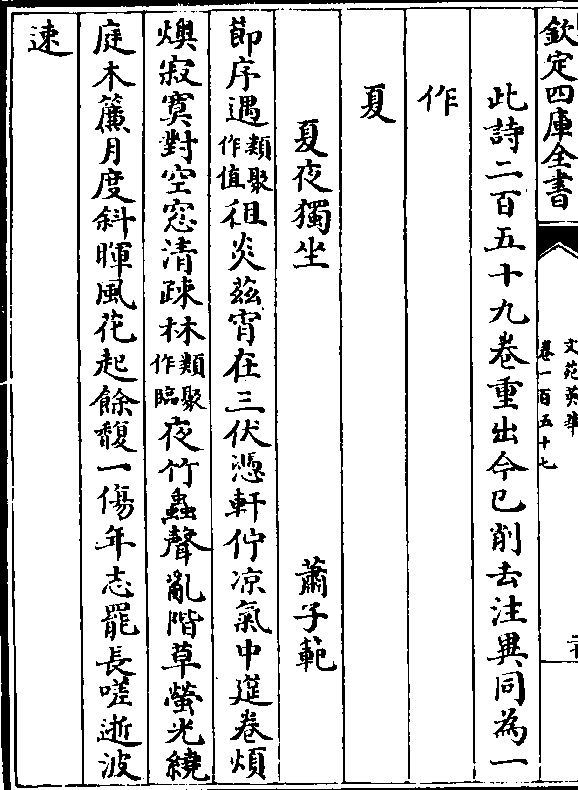 欽定四庫全書
文苑英華
卷一百五十七
此詩二百五十九卷重出今已削去注異同為一
作
夏
夏夜獨坐 蕭子範
節序遇類聚作值徂炎茲宵在三伏憑軒佇凉氣中筵卷煩
燠寂寞對空窓清疎林類聚作臨夜竹蟲聲亂階草螢光繞
庭木簾月度斜暉風花起餘馥一傷年志罷長嗟逝波
速